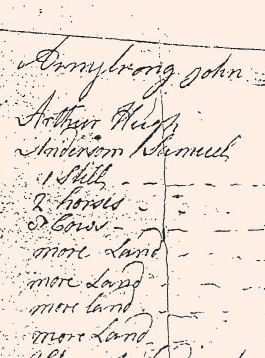 Armstrong John
Arthur Hugh
Anderson Samuel
1 Still
2 horses
8 Cows
more Land
more Land
more land
more Land